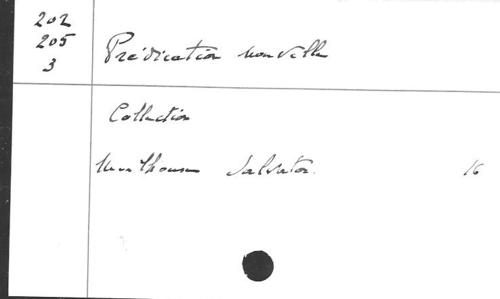 202
205
3
Prédication nouvelle
Collection
Salvator. 16